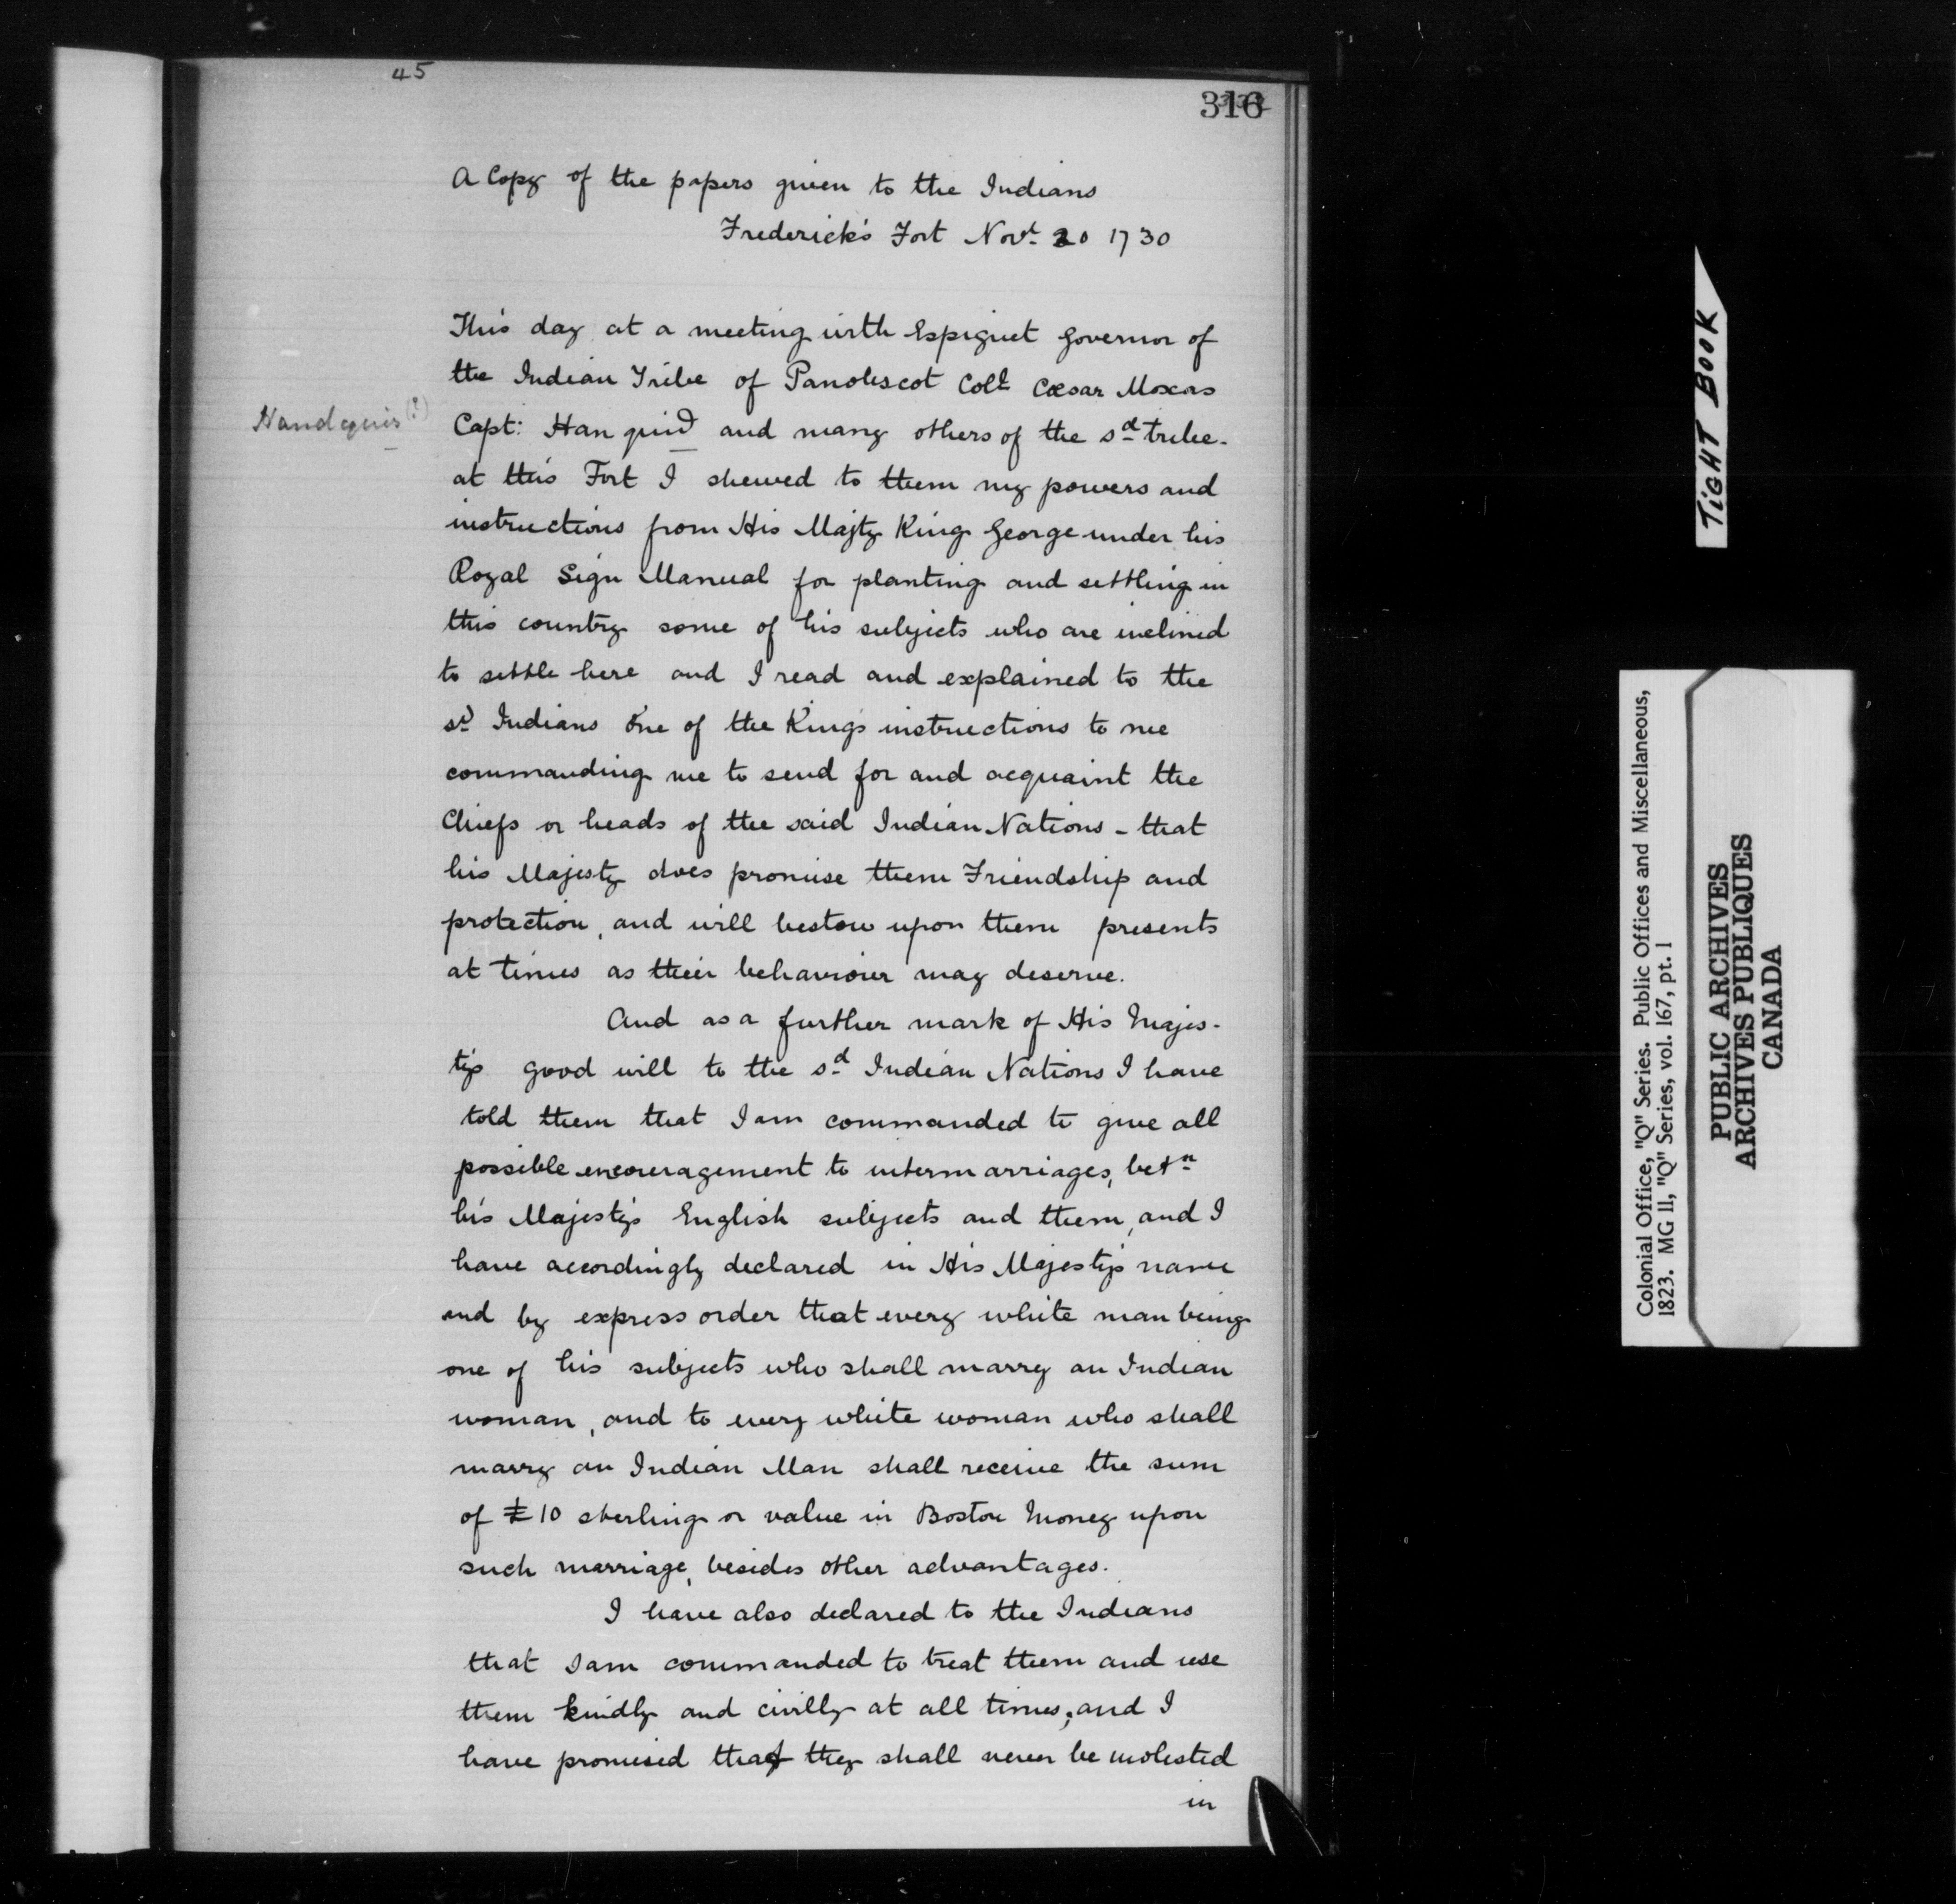 45
316
A Copy of the papers given to the Indians
Frederick's Fort Novr. 20 1730
This day at a meeting with Espiguet Governor of
the Indian Tribe of Panobscot Coll Cæsar Moxas
Handquis (?)
Capt: Han quid and many others of the sd tribe.
at this Fort I shewed to them my powers and
instructions from His Majty King George under his
Royal Sign Manual for planting and settling in
this country some of his subjects who are inclined
to settle here and I read and explained to the
sd Indians one of the King's instructions to me
commanding me to send for and acquaint the
Chiefs or heads of the said Indian Nations - that
his Majesty does promise them Friendship and
protection, and will bestow upon them presents
at times as their behaviour may deserve.
And as a further mark of His Majes-
tys good will to the sd Indian Nations I have
told them that I am commanded to give all
possible encouragement to intermarriages, betn
his Majestys English subjects and them, and I
have accordingly declared in His Majestys name
and by express order that every white man being
one of his subjects who shall marry an Indian
woman, and to every white woman who shall
marry an Indian Man shall receive the sum
of £10 sterling or value in Boston Money upon
such marriage, besides other advantages.
I have also declared to the Indians
that I am commanded to treat them and use
them kindly and civilly at all times, and I
have promised that they shall never be molested
in
TIGHT BOOK
Colonial Office, "Q" Series. Public Offices and Miscellaneous,
1823. MG 11, "Q" Series, vol. 167, pt. 1
PUBLIC ARCHIVES
ARCHIVES PUBLIQUES
CANADA